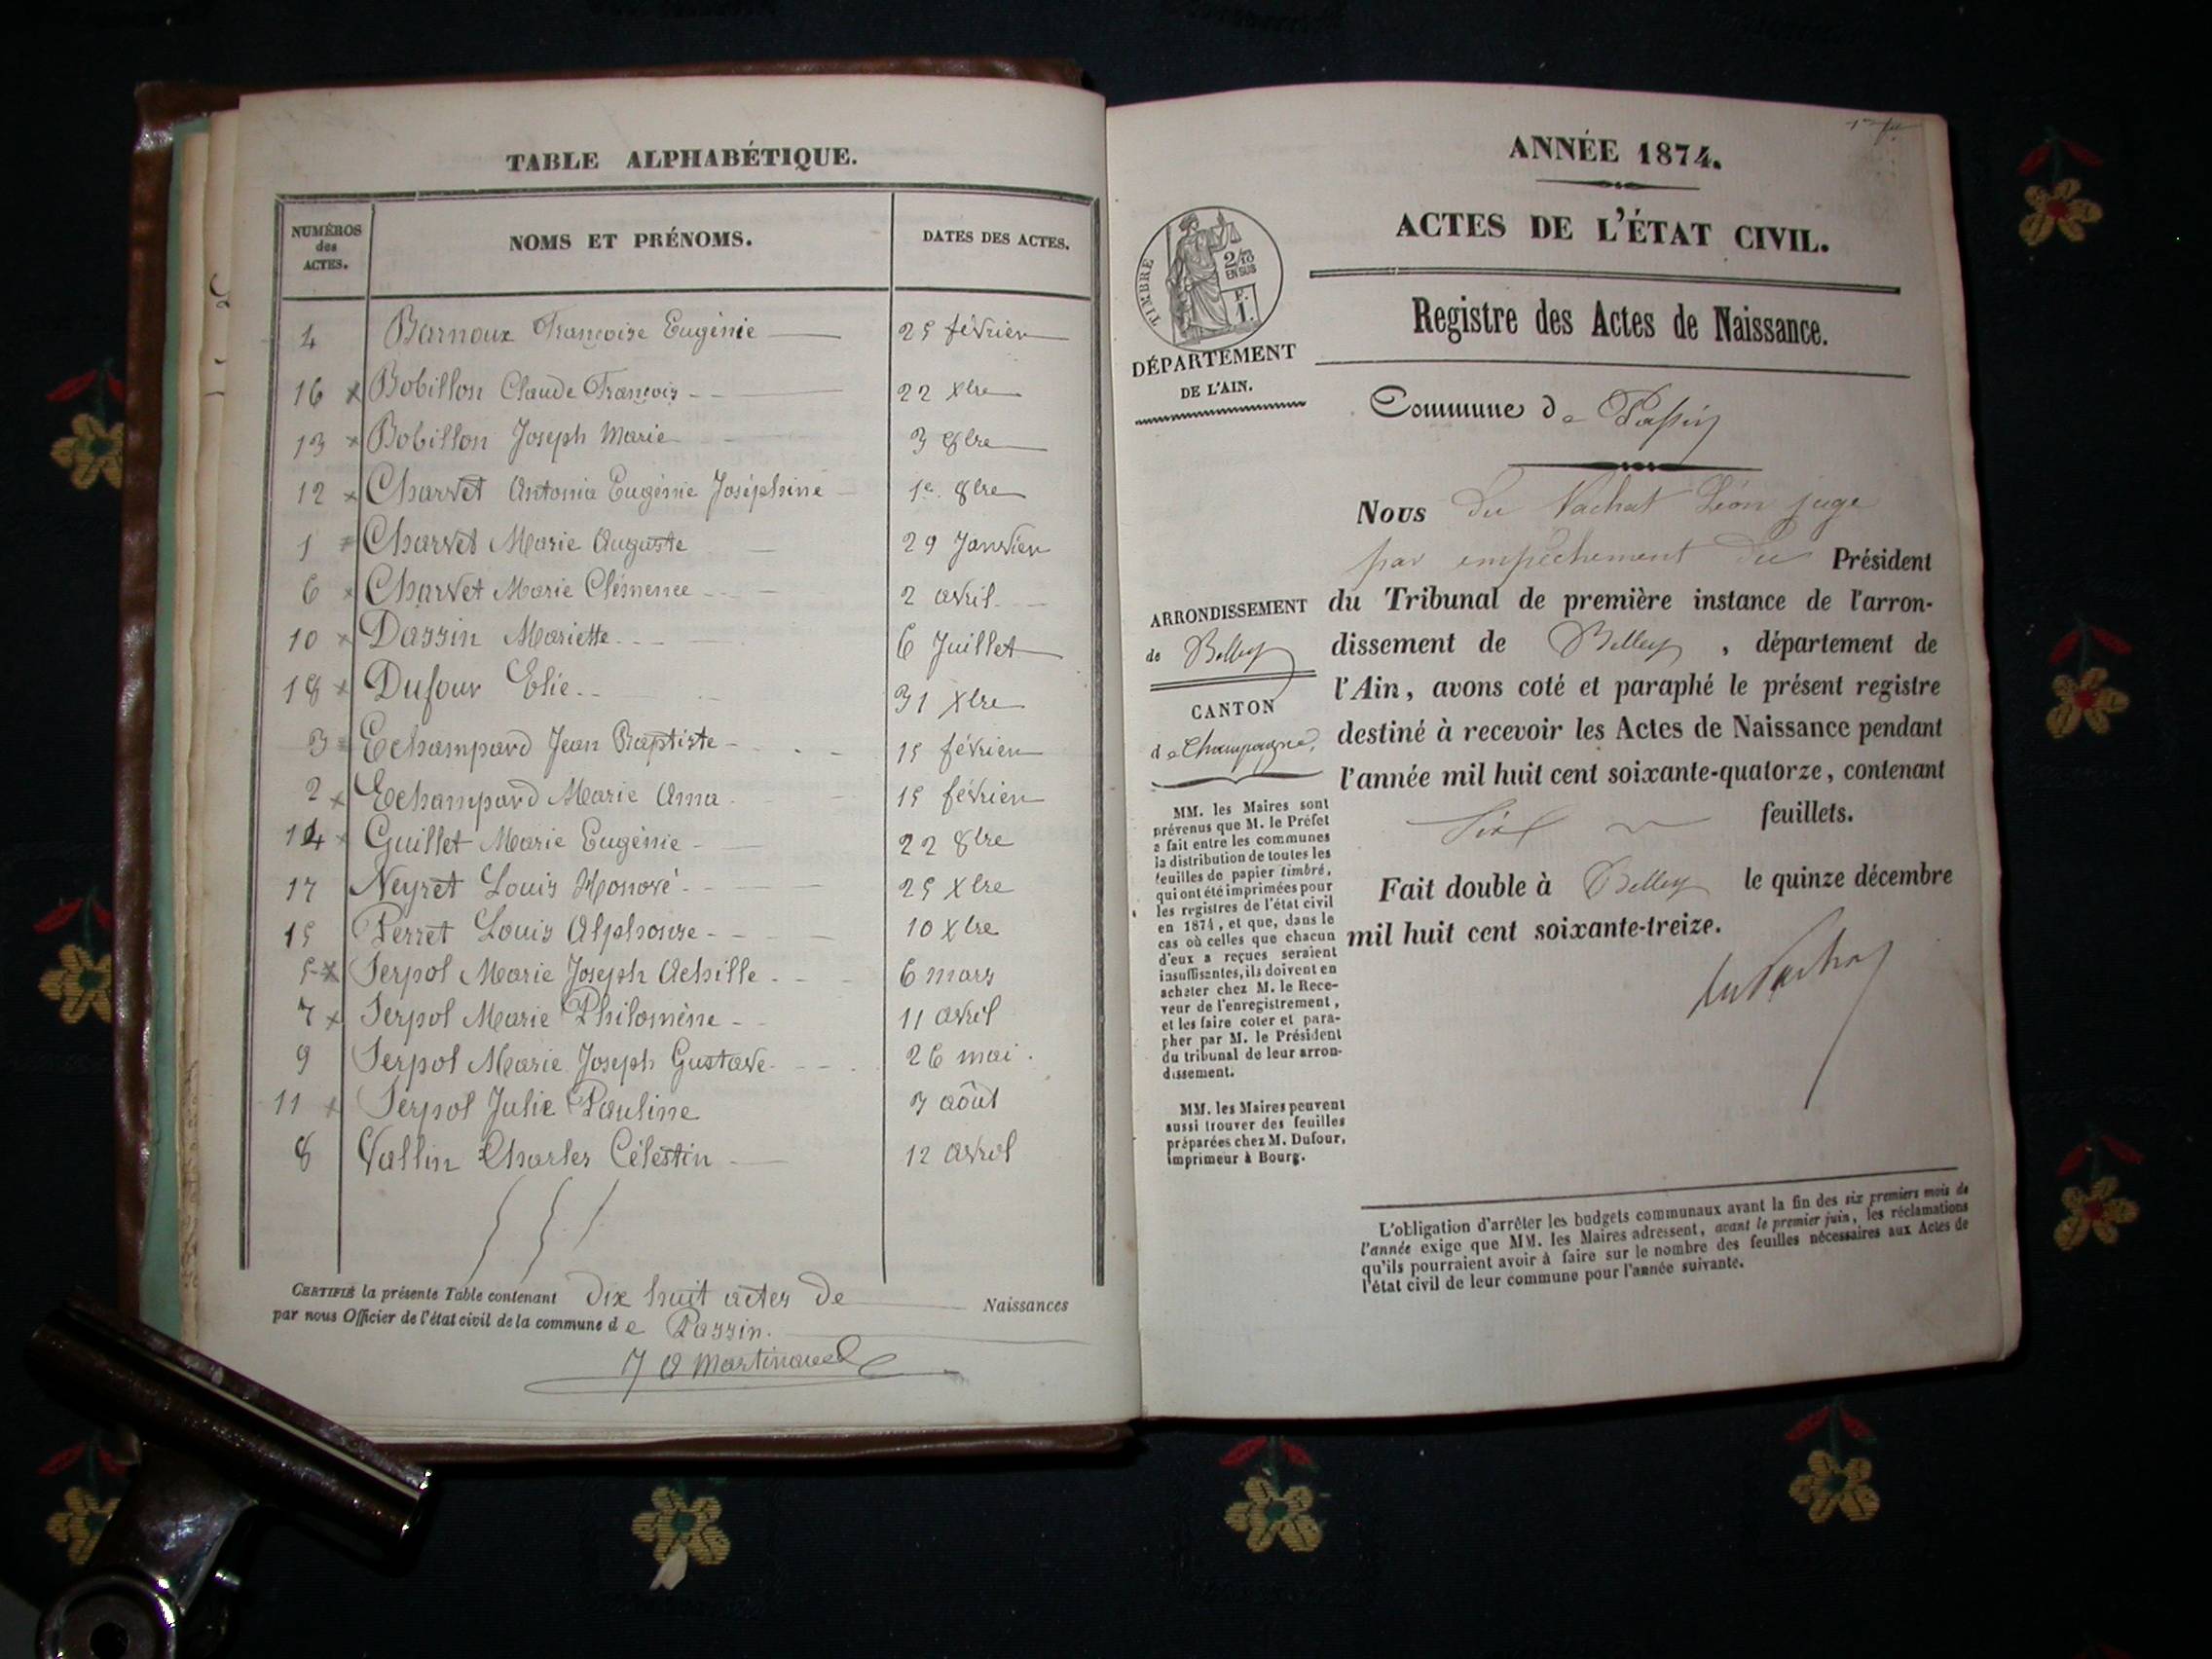 TABLE ALPHABÉTIQUE.
NUMÉROS des ACTES.
NOMS ET PRÉNOMS.
DATES DES ACTES.
4 Barnoux Françoise Eugénie 25 février
16 x Bobillon Claude François 22 Xbre
13 x Bobillon Joseph Marie 3 8bre
12 x Charvet Antonia Eugénie Joséphine 1er 8bre
1 Charvet Marie Auguste 29 Janvier
6 x Charvet Marie Clémence 2 avril
10 x Dassin Mariette 6 Juillet
18 x Dufour Elie 31 Xbre
3 Echampard Jean Baptiste 15 février
2 x Echampard Marie Ama 15 février
14 x Guillet Marie Eugénie 22 8bre
17 Neyret Louis Honoré 25 Xbre
15 Perret Louis Alphonse 10 Xbre
5 x Serpol Marie Joseph Achille 6 mars
7 x Serpol Marie Philomène 11 avril
9 Serpol Marie Joseph Gustave 26 mai
11 x Serpol Julie Pauline 3 août
8 Vallin Charles Célestin 12 avril
CERTIFIÉ la présente Table contenant dix huit actes de Naissances
par nous Officier de l'état civil de la commune de Passin.
Martinand
ANNÉE 1874.
ACTES DE L'ÉTAT CIVIL.
Registre des Actes de Naissance.
TIMBRE
2/10
EN SUS
F.
1.
DÉPARTEMENT
DE L'AIN.
Commune de Passin
Nous du Vachat Léon juge
par empêchement du Président
du Tribunal de première instance de l'arron-
dissement de Belley, département de
l'Ain, avons coté et paraphé le présent registre
destiné à recevoir les Actes de Naissance pendant
l'année mil huit cent soixante-quatorze, contenant
Six feuillets.
Fait double à Belley le quinze décembre
mil huit cent soixante-treize.
du Vachat
ARRONDISSEMENT
de Belley
CANTON
de Champagne
MM. les Maires sont
prévenus que M. le Préfet
a fait entre les communes
la distribution de toutes les
feuilles de papier timbré,
qui ont été imprimées pour
les registres de l'état civil
en 1874, et que, dans le
cas où celles que chacun
d'eux a reçues seraient
insuffisantes, ils doivent en
acheter chez M. le Rece-
veur de l'enregistrement,
et les faire coter et para-
pher par M. le Président
du tribunal de leur arron-
dissement.
MM. les Maires peuvent
aussi trouver des feuilles
préparées chez M. Dufour,
imprimeur à Bourg.
L'obligation d'arrêter les budgets communaux avant la fin des six premiers mois de
l'année exige que MM. les Maires adressent, avant le premier juin, les réclamations
qu'ils pourraient avoir à faire sur le nombre des feuilles nécessaires aux Actes de
l'état civil de leur commune pour l'année suivante.